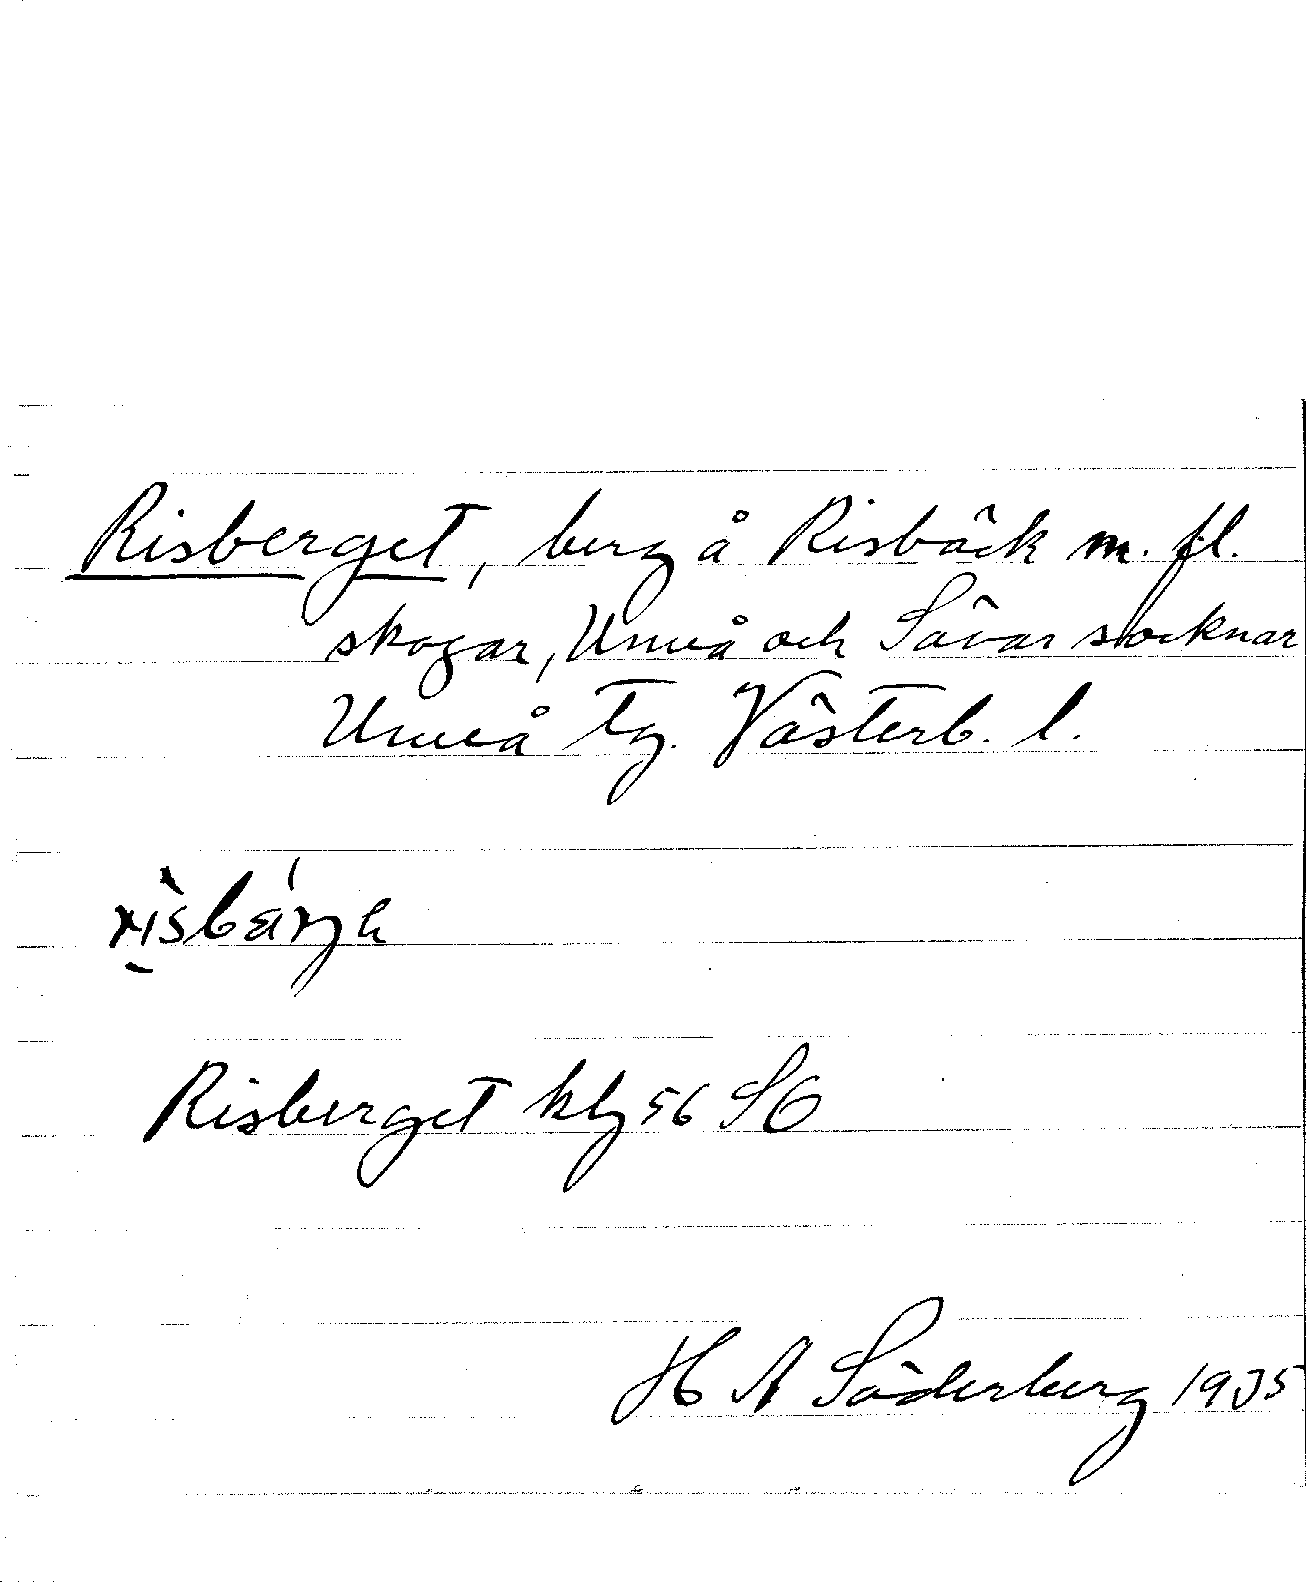 Risberget, berg å Risbäck m. fl.
skogar, Umeå och Sävar socknar
Umeå tg. Västerb. l.
Risberget kbg 56 SO
H A Söderberg 1935